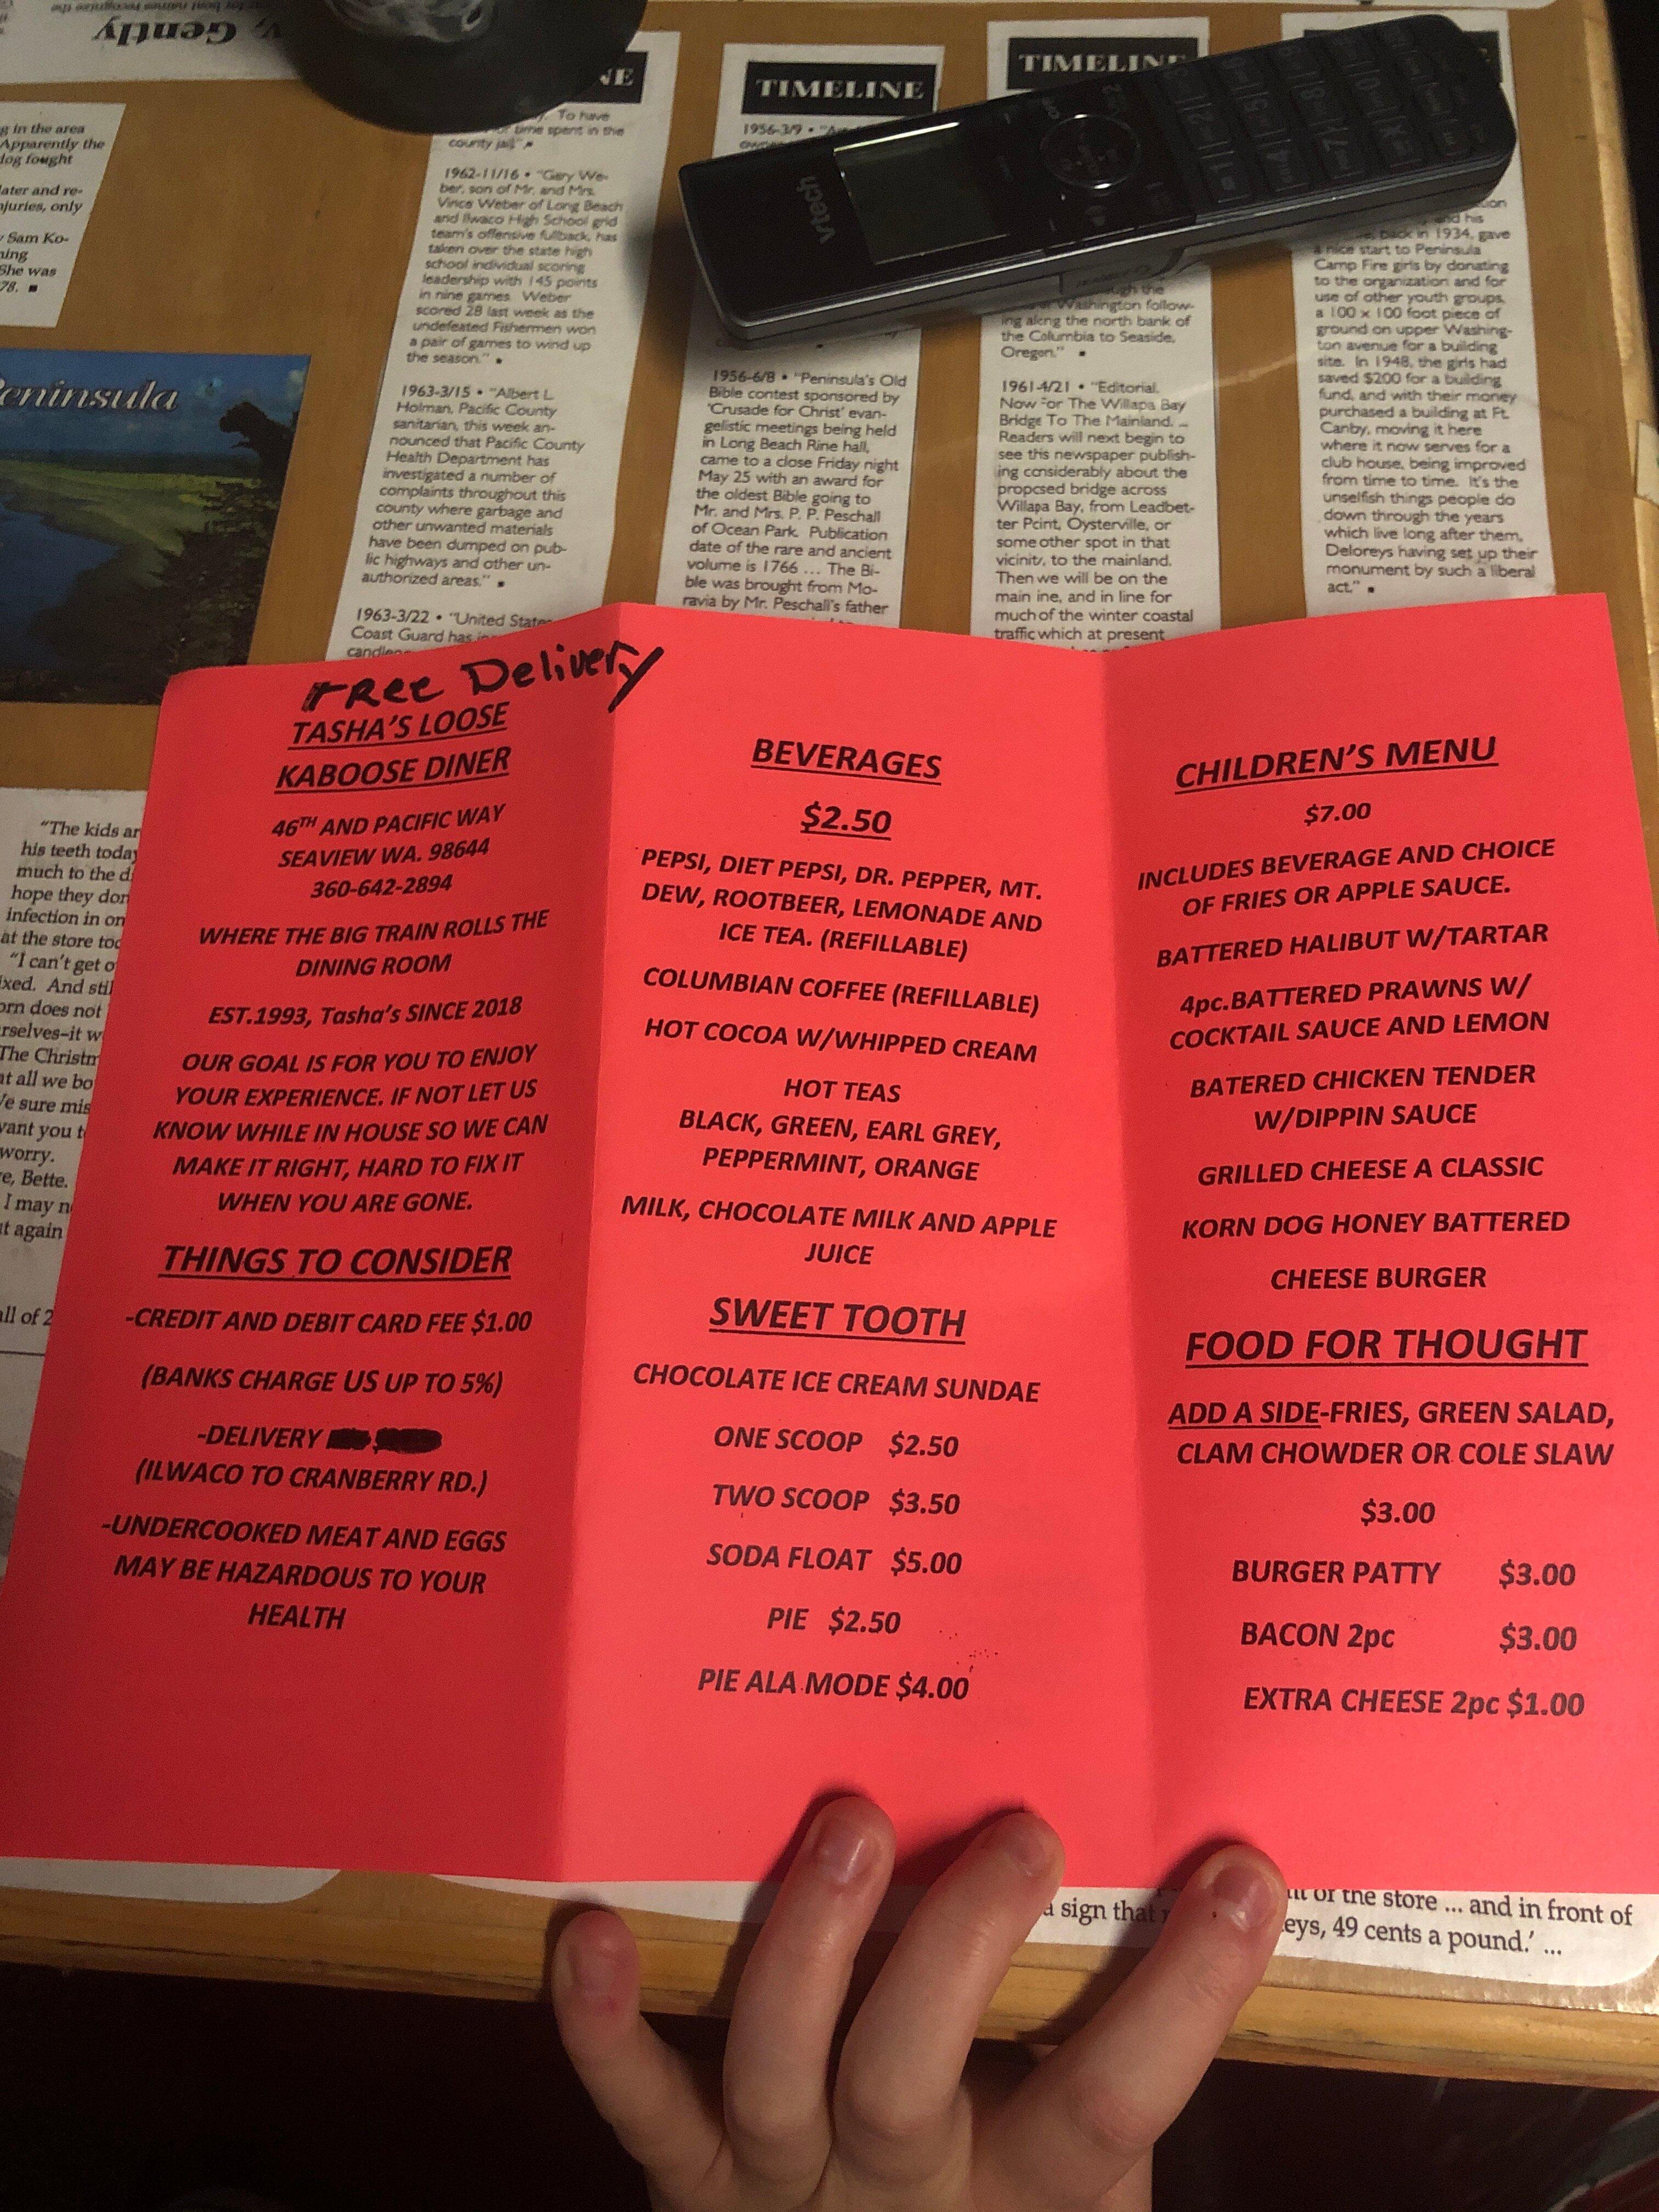 v, Gently
g in the area
Apparently the
dog fought
later and re-
juries, only
Sam Ko-
ning
She was
78. ■
Peninsula
NE
To have
time spent in the
county jail." ■
1962-11/16 • "Gary We-
ber, son of Mr. and Mrs.
Vince Weber of Long Beach
and Ilwaco High School grid
team's offensive fullback, has
taken over the state high
school individual scoring
leadership with 145 points
in nine games. Weber
scored 28 last week as the
undefeated Fishermen won
a pair of games to wind up
the season." ■
1963-3/15 • "Albert L.
Holman, Pacific County
sanitarian, this week an-
nounced that Pacific County
Health Department has
investigated a number of
complaints throughout this
county where garbage and
other unwanted materials
have been dumped on pub-
lic highways and other un-
authorized areas." ■
1963-3/22 • "United States
Coast Guard has
TIMELINE
1956-3/9 •
vtech
1956-6/8 • "Peninsula's Old
Bible contest sponsored by
'Crusade for Christ' evan-
gelistic meetings being held
in Long Beach Rine hall,
came to a close Friday night
May 25 with an award for
the oldest Bible going to
Mr. and Mrs. P. P. Peschall
of Ocean Park. Publication
date of the rare and ancient
volume is 1766 ... The Bi-
ble was brought from Mo-
ravia by Mr. Peschall's father
TIMELINE
through the
of Washington follow-
ing along the north bank of
the Columbia to Seaside,
Oregon." ■
1961-4/21 • "Editorial.
Now For The Willapa Bay
Bridge To The Mainland. ...
Readers will next begin to
see this newspaper publish-
ing considerably about the
proposed bridge across
Willapa Bay, from Leadbet-
ter Point, Oysterville, or
some other spot in that
vicinity, to the mainland.
Then we will be on the
main line, and in line for
much of the winter coastal
traffic which at present
and his
back in 1934, gave
a nice start to Peninsula
Camp Fire girls by donating
to the organization and for
use of other youth groups,
a 100 x 100 foot piece of
ground on upper Washing-
ton avenue for a building
site. In 1948, the girls had
saved $200 for a building
fund, and with their money
purchased a building at Ft.
Canby, moving it here
where it now serves for a
club house, being improved
from time to time. It's the
unselfish things people do
down through the years
which live long after them,
Deloreys having set up their
monument by such a liberal
act." ■
"The kids ar
his teeth today
much to the d
hope they don
infection in on
at the store too
"I can't get o
ixed. And still
orn does not
rselves–it w
The Christm
at all we bo
We sure mis
want you t
worry.
e, Bette.
I may n
t again
all of 2
FRee Delivery
TASHA'S LOOSE
KABOOSE DINER
46TH AND PACIFIC WAY
SEAVIEW WA. 98644
360-642-2894
WHERE THE BIG TRAIN ROLLS THE
DINING ROOM
EST.1993, Tasha's SINCE 2018
OUR GOAL IS FOR YOU TO ENJOY
YOUR EXPERIENCE. IF NOT LET US
KNOW WHILE IN HOUSE SO WE CAN
MAKE IT RIGHT, HARD TO FIX IT
WHEN YOU ARE GONE.
THINGS TO CONSIDER
-CREDIT AND DEBIT CARD FEE $1.00
(BANKS CHARGE US UP TO 5%)
-DELIVERY
(ILWACO TO CRANBERRY RD.)
-UNDERCOOKED MEAT AND EGGS
MAY BE HAZARDOUS TO YOUR
HEALTH
BEVERAGES
$2.50
PEPSI, DIET PEPSI, DR. PEPPER, MT.
DEW, ROOTBEER, LEMONADE AND
ICE TEA. (REFILLABLE)
COLUMBIAN COFFEE (REFILLABLE)
HOT COCOA W/WHIPPED CREAM
HOT TEAS
BLACK, GREEN, EARL GREY,
PEPPERMINT, ORANGE
MILK, CHOCOLATE MILK AND APPLE
JUICE
SWEET TOOTH
CHOCOLATE ICE CREAM SUNDAE
ONE SCOOP $2.50
TWO SCOOP $3.50
SODA FLOAT $5.00
PIE $2.50
PIE ALA MODE $4.00
CHILDREN'S MENU
$7.00
INCLUDES BEVERAGE AND CHOICE
OF FRIES OR APPLE SAUCE.
BATTERED HALIBUT W/TARTAR
4pc.BATTERED PRAWNS W/
COCKTAIL SAUCE AND LEMON
BATERED CHICKEN TENDER
W/DIPPIN SAUCE
GRILLED CHEESE A CLASSIC
KORN DOG HONEY BATTERED
CHEESE BURGER
FOOD FOR THOUGHT
ADD A SIDE-FRIES, GREEN SALAD,
CLAM CHOWDER OR COLE SLAW
$3.00
BURGER PATTY $3.00
BACON 2pc $3.00
EXTRA CHEESE 2pc $1.00
of the store ... and in front of
a sign that
eys, 49 cents a pound.' ...